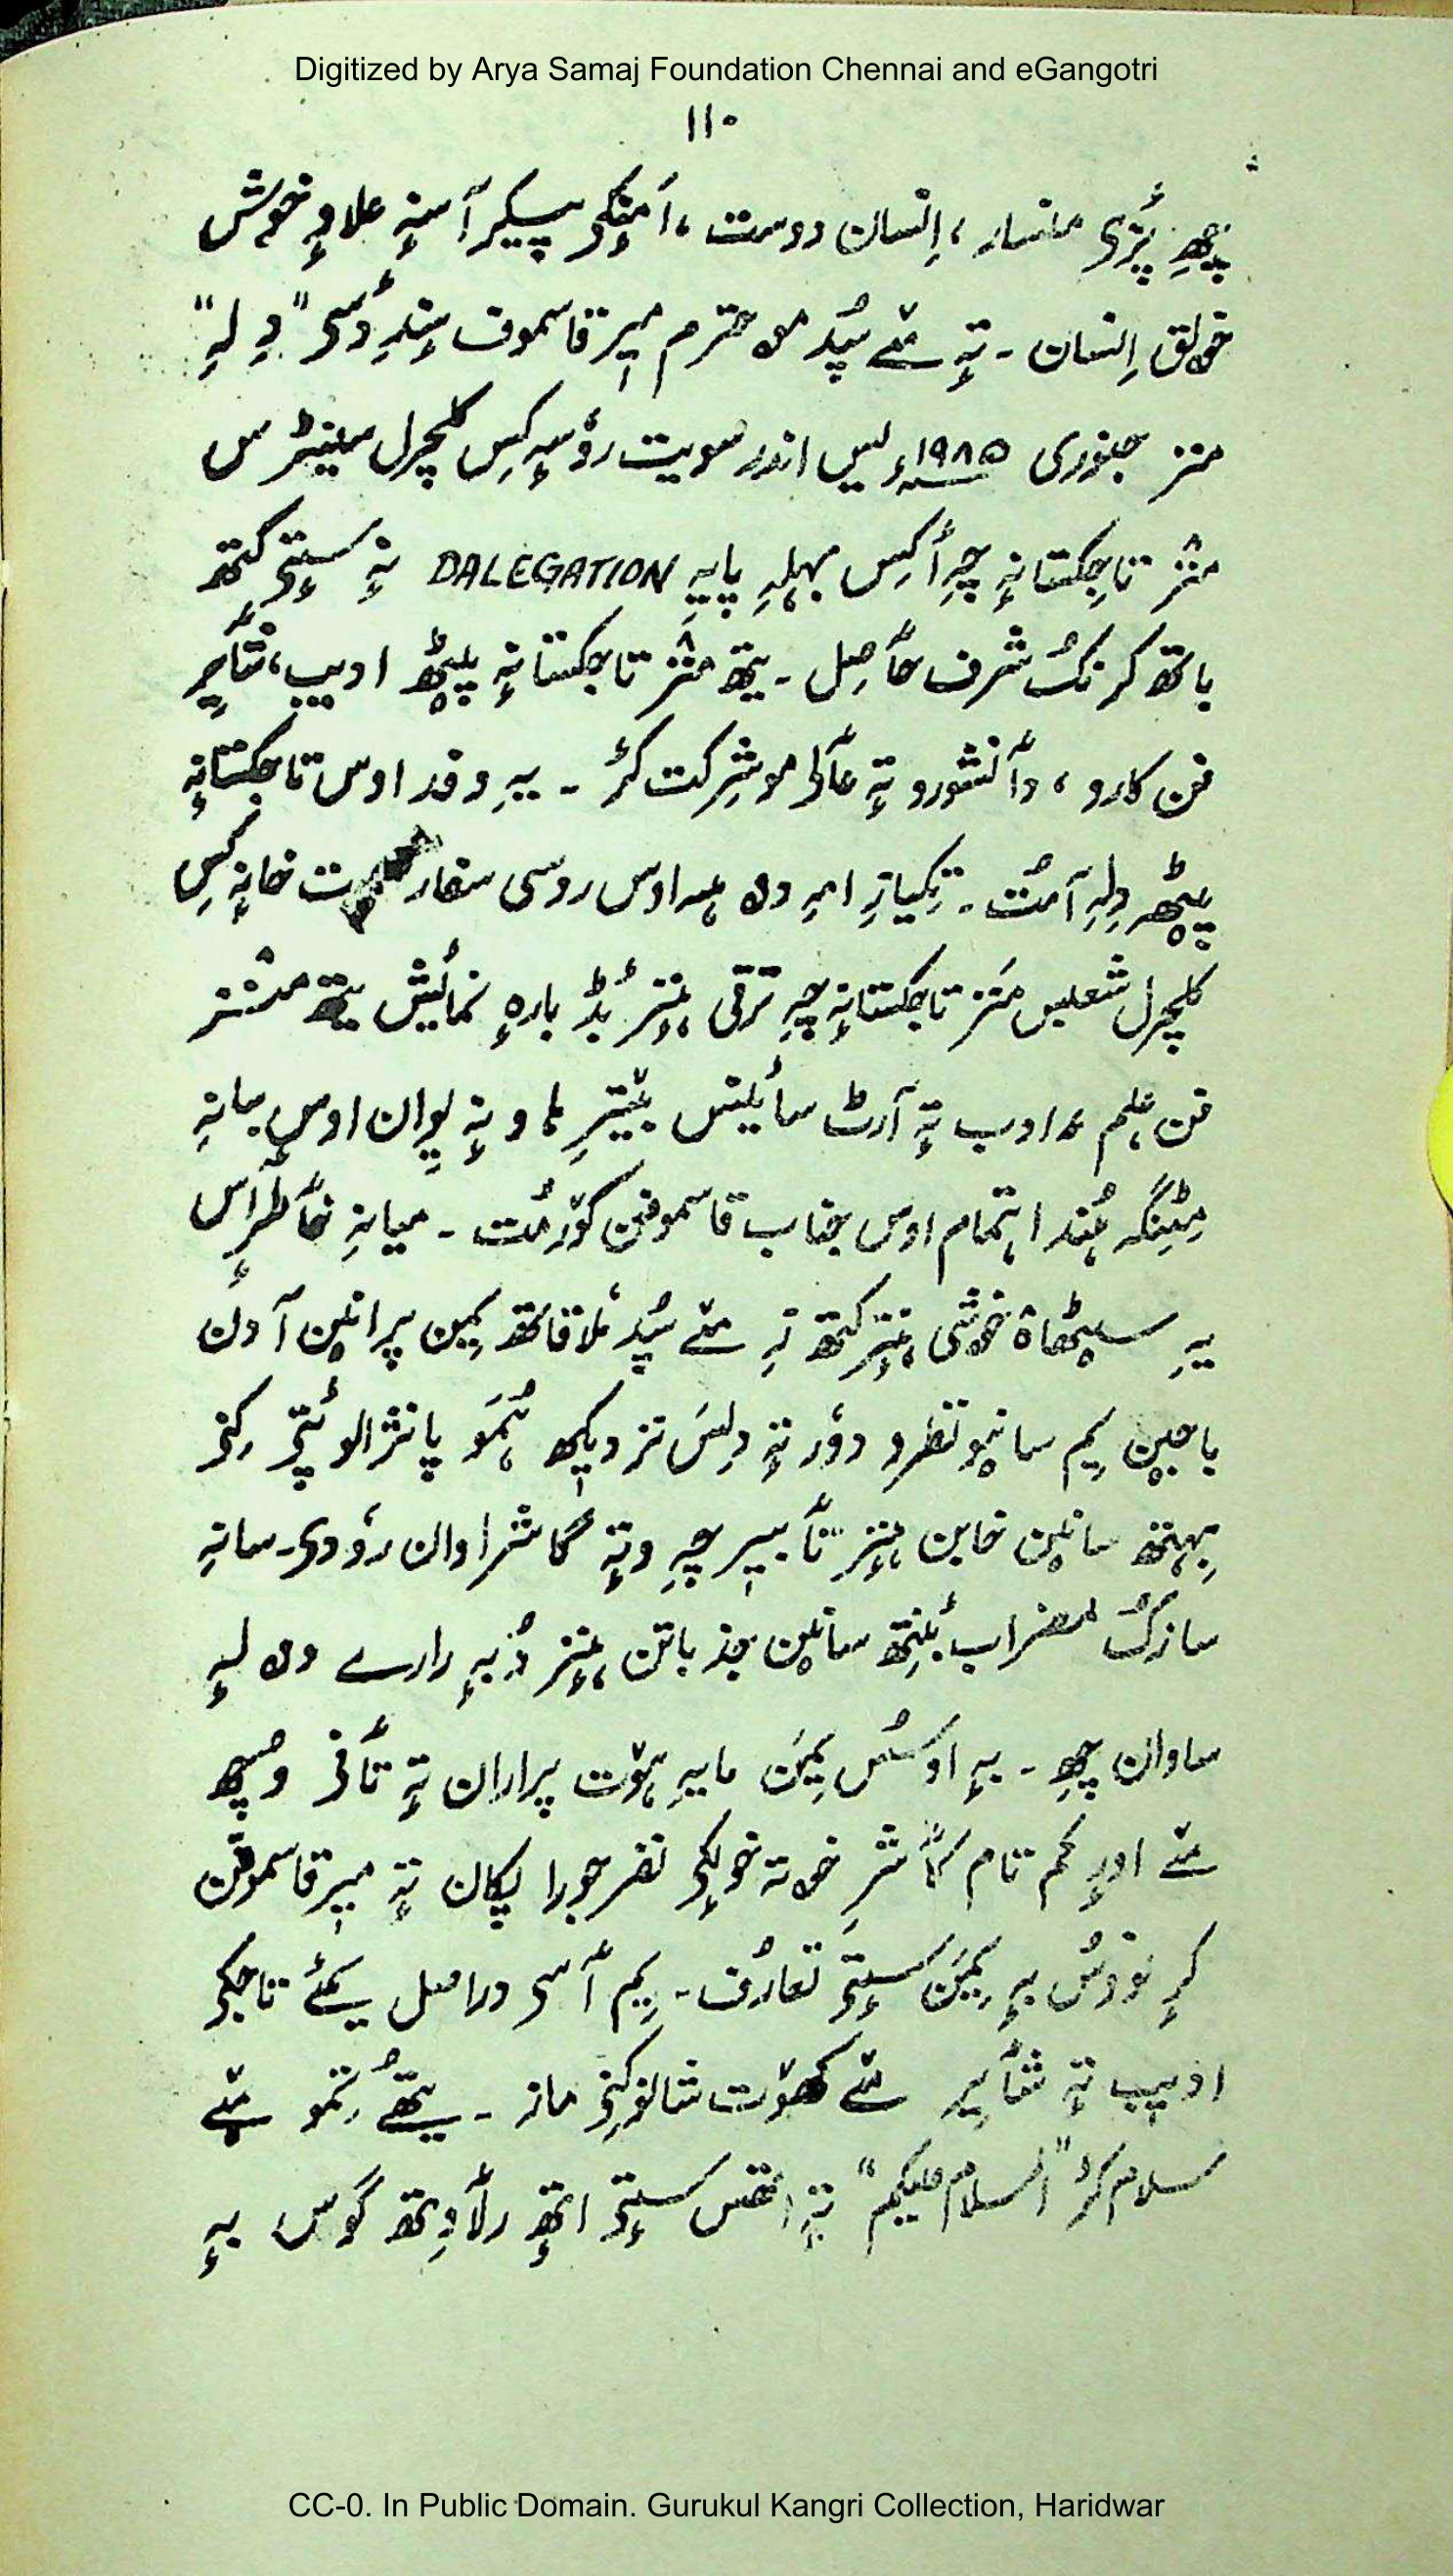 Digitized by Arya Samaj Foundation Chennai and eGangotri
۱۱۰
چھِ پٔزی ملنسار ، اِنسان دوست ، اَمنٕکۍ پیکر آسنہٕ علاوٕ خوش
خولق اِنسان ۔ تہٕ مےٚ سپُد موحترم میر قاسموف سٕندِ دٔسۍ "دِلہِ"
منز جنوری ۱۹۸۵ء یس اندر سویت روٗسہٕ کِس کلچرل سینٹرس
منٛز تاجِکستانہٕ چہِ أکِس بہلہِ پایہِ DALEGATION نہٕ سٕتۍ کتھ
باتھ کرنُک شرف حٲصِل ۔ یتھ منٛز تاجکستانہٕ پیٹھٕ ادیب، شٲیرِ
فن کارو ، دٲنشورو تہٕ عٲلمو شِرکت کٔر ۔ یہِ وفد اوس تاجکستانہٕ
پیٹھٕ دِلہِ آمُت ۔ تِکیازِ امہِ وِہ اوس روسی سفارت خانہٕ کِس
کلچرل شعبس منز تاجکستانہٕ چہِ ترقی ہٕنٛز بٔڈ بارہٕ نمٲیش یتھ منٛز
فن ، علم ، ادب تہٕ آرٹ سأینس بیٚترِ ہاونہٕ یِوان اوس یمہِ
مِٹینگہ ہُند اہتمام اوس جناب قاسموفن کوٚرمُت ۔ میانہِ خٲطرٕ ٲس
یہِ سیٹھاہ خوشی ہٕنٛز کتھ زِ مےٚ سپُد مُلاقاتھ یِمن پرانین آدن
باجین یِم سانیو نظرو دوٗر تہٕ دِلس نزدیکھ ہُمو پانژالو پٔتۍ کِنۍ
بِہتھ سانین خابن ہٕنٛز تٲبیر چہِ وتہٕ گاشراوان روٗدۍ ۔ سانہِ
سازُک مضراب بٔنِتھ سانین جذباتن ہٕنٛز دُبہٕ رارے وہ لہٕ
ساوان چھِ ۔ بہٕ اوسُس یِمَن مایہِ ہوٚت پراران تہٕ تٲفۍ وُچھ
مےٚ اورٕ کم تام کٲشرِ خوتہ خولٕکۍ نفر جورا پکان تہٕ میر قاسموفن
کرٕ نوٚوُس بہٕ یِمَن سٕتۍ تعارُف ۔ یِم ٲسۍ دراصل یمےٚ تاجکۍ
ادیب تہٕ شٲیر مےٚ کھوٚت شالمٕکنۍ مانز ۔ یتھےٚ تِمو مےٚ
سلام کٔر "السلام علیکم" تہٕ اتھس سٕتۍ اتھٕ رلٲوِتھ گوس بہٕ
CC-0. In Public Domain. Gurukul Kangri Collection, Haridwar